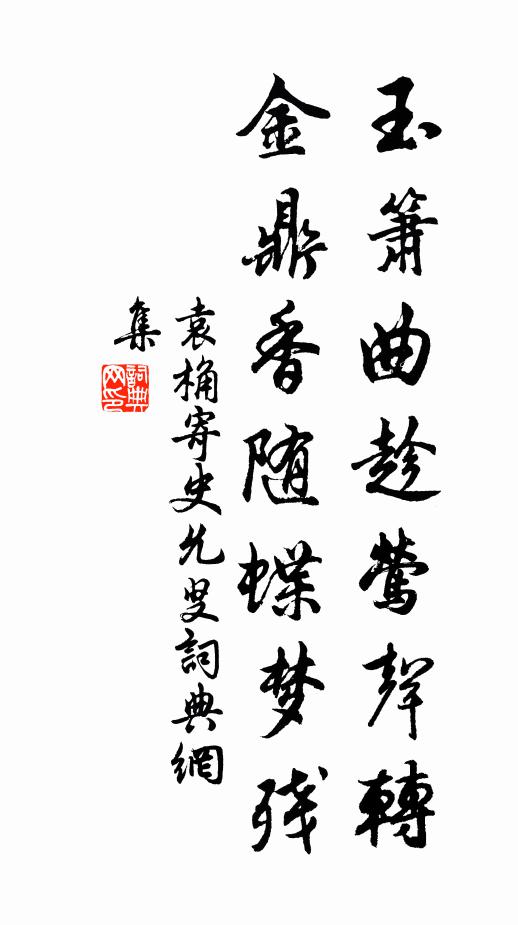 玉箫曲趁莺聲轉
金鼎香随蝶梦残
袁桷寄史允叟詞典網
集
詞典网印